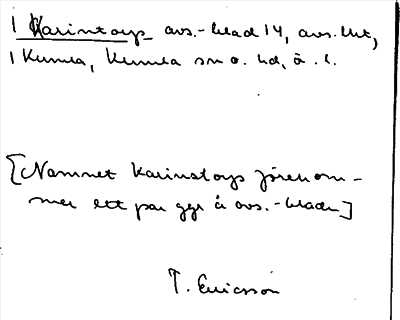 1 Karintorp avs.-blad 14, avs.
1 Kumla, Kumla sn o. hd, ö. l.
[Namnet Karinstorp förekom-
mer ett par ggr å avs.-blade]
T. Ericsson